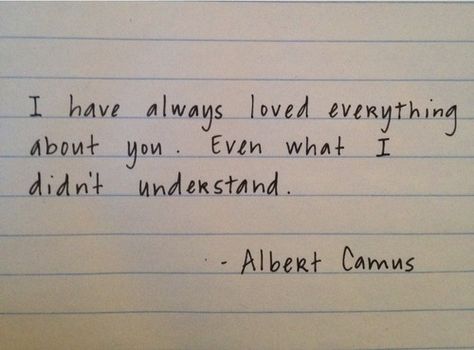 I have always loved everything
about you. Even what I
didn't understand.
- Albert Camus